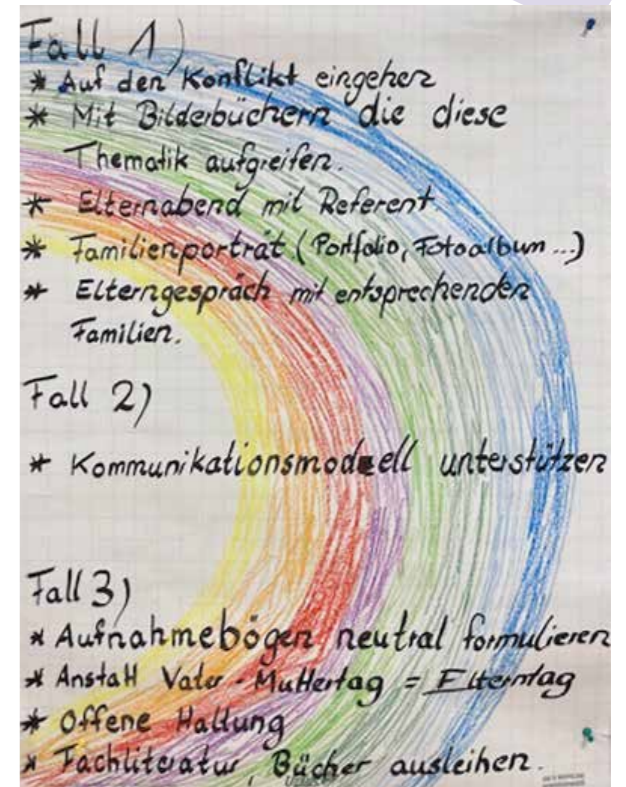 Fall 1)
* Auf den Konflikt eingehen
* Mit Bilderbüchern die diese
Thematik aufgreifen.
* Elternabend mit Referent
* Familienporträt (Portfolio, Fotoalbum ...)
* Elterngespräch mit entsprechenden
Familien.
Fall 2)
* Kommunikationsmodell unterstützen
Fall 3)
* Aufnahmebögen neutral formulieren
* Anstatt Vater - Muttertag = Elterntag
* Offene Haltung
* Fachliteratur, Bücher ausleihen.